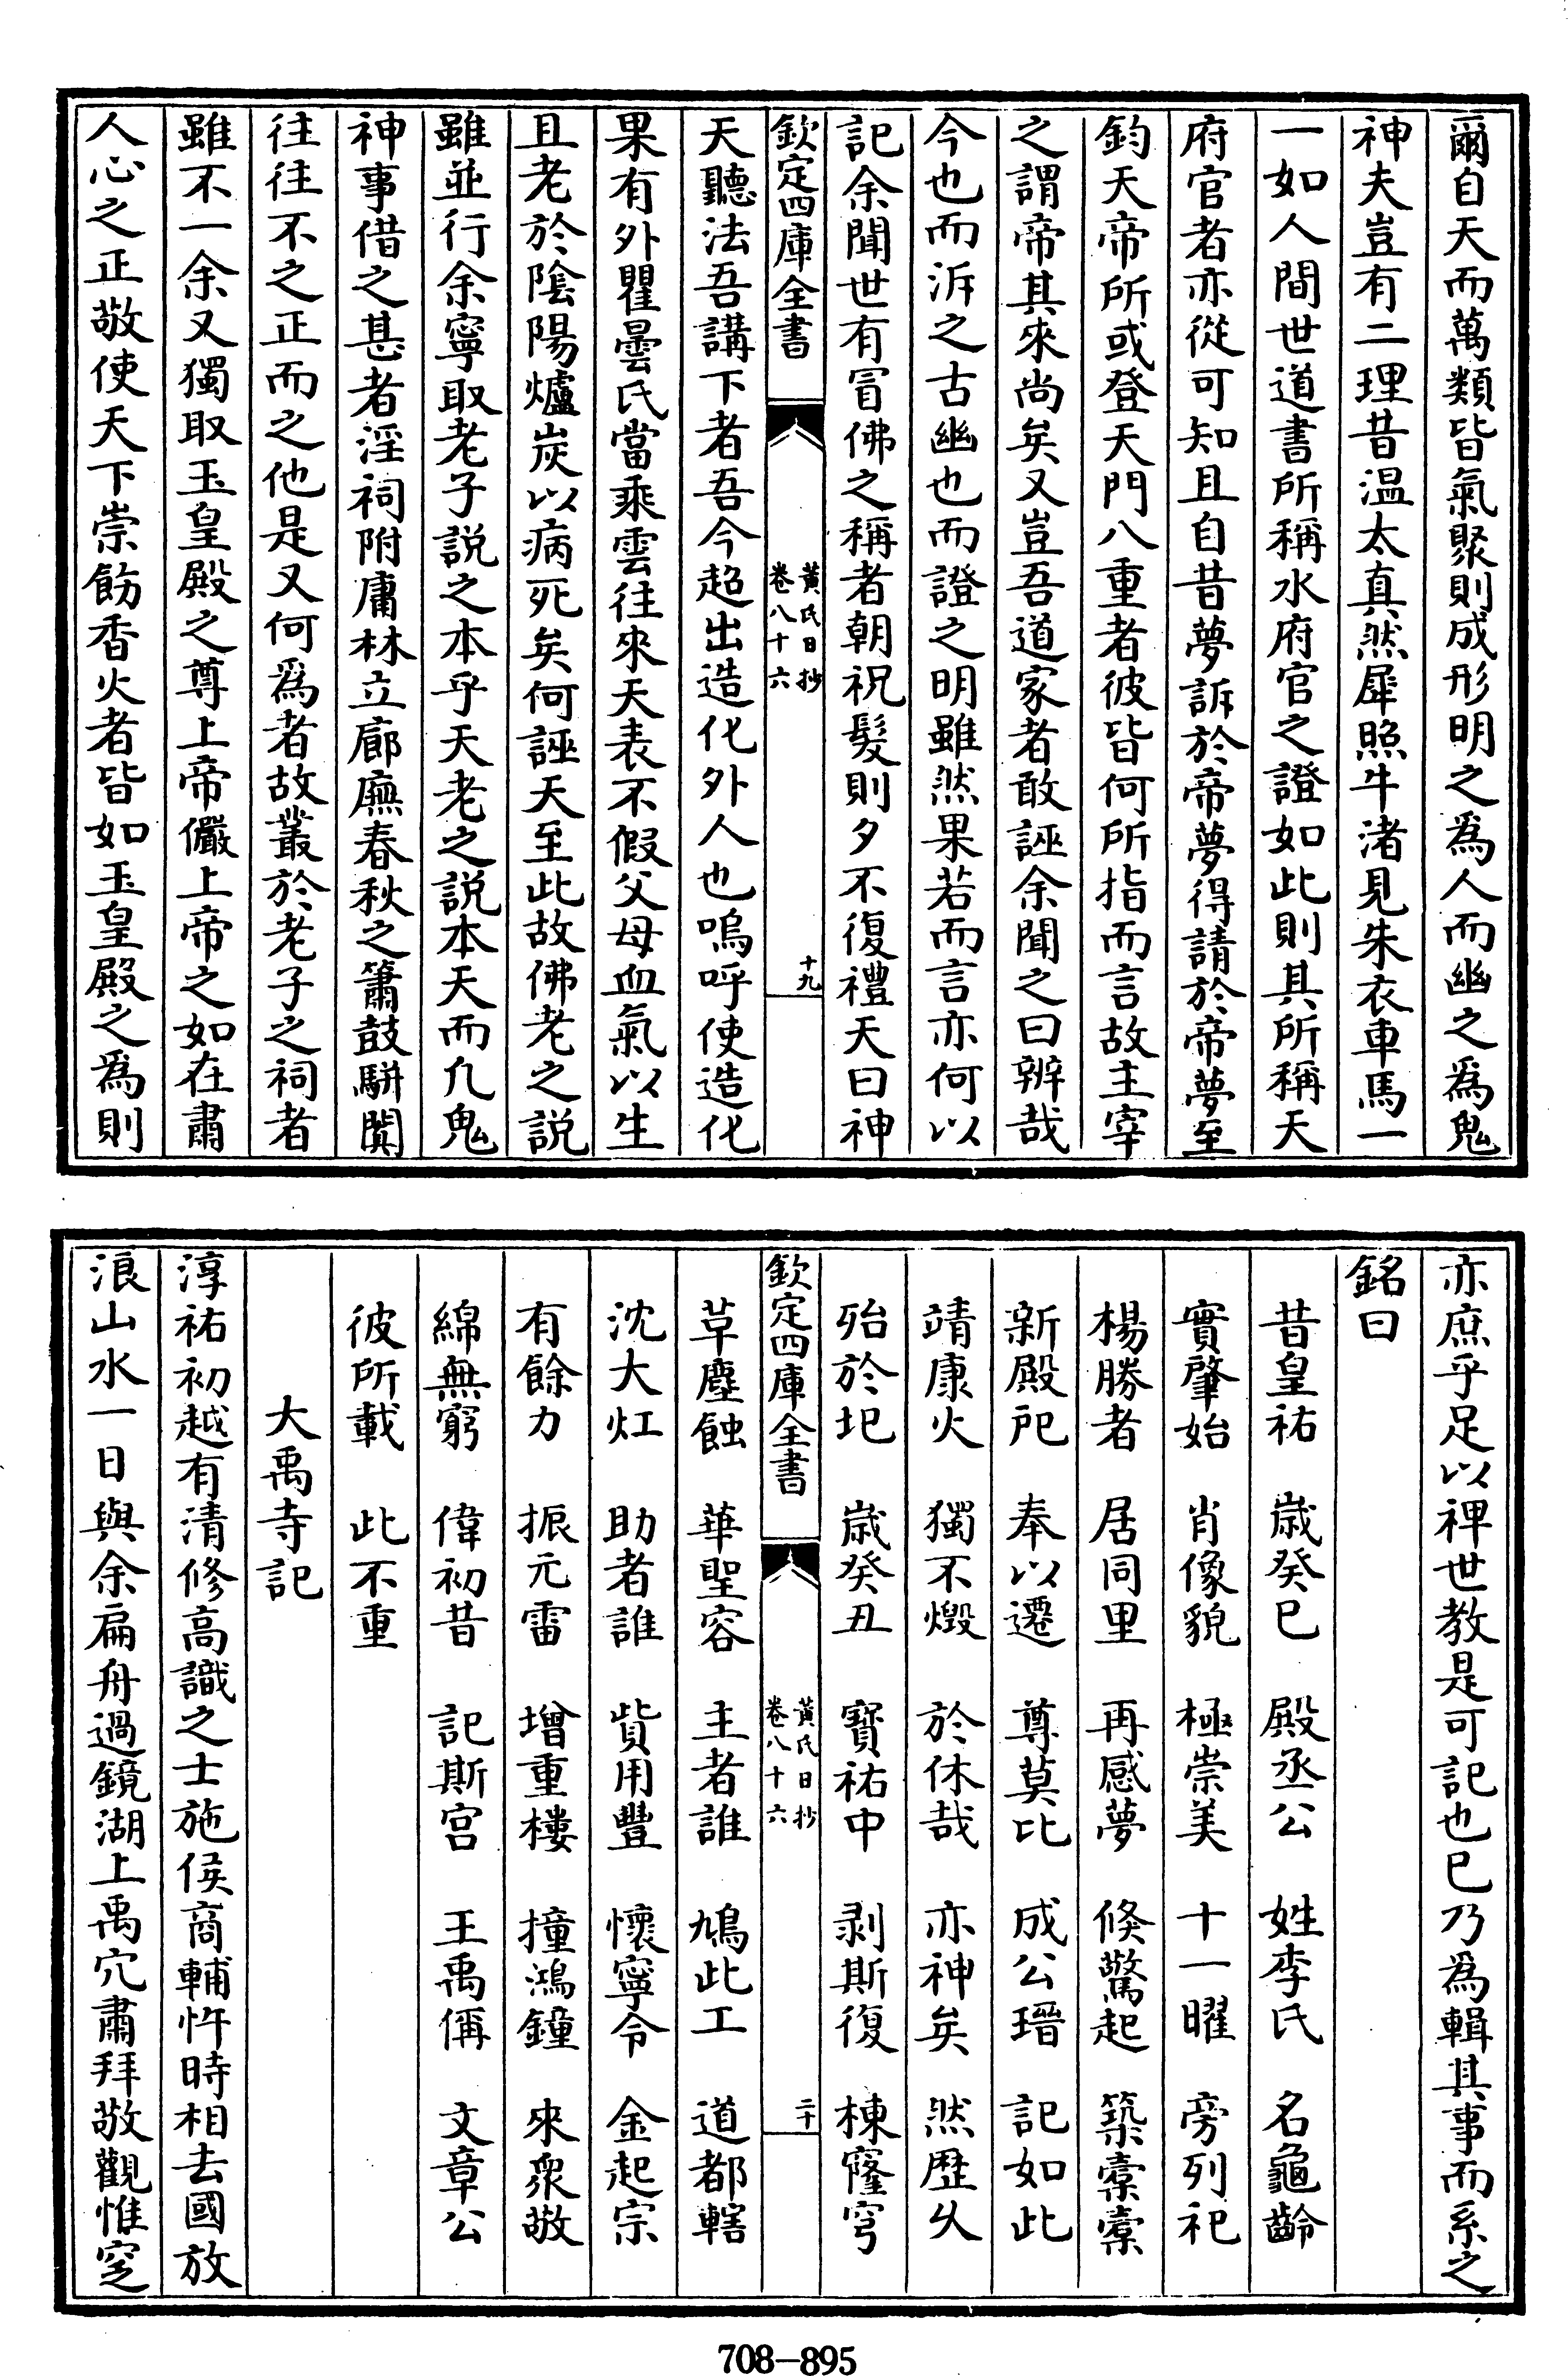 爾自天而萬類皆氣聚則成形明之為人而幽之為鬼
神夫豈有二理昔温太真然犀照牛渚見朱衣車馬一
一如人間世道書所稱水府官之證如此則其所稱天
府官者亦從可知且自昔夢訴於帝夢得請於帝夢至
鈞天帝所或登天門八重者彼皆何所指而言故主宰
之謂帝其來尚矣又豈吾道家者敢誣余聞之曰辨哉
今也而泝之古幽也而證之明雖然果若而言亦何以
記余聞世有冒佛之稱者朝祝髮則夕不復禮天曰神
欽定四庫全書
黃氏日抄
卷八十六
十九
天聽法吾講下者吾今超出造化外人也嗚呼使造化
果有外瞿曇氏當乘雲往來天表不假父母血氣以生
且老於陰陽爐炭以病死矣何誣天至此故佛老之説
雖並行余寧取老子説之本乎天老之説本天而凡鬼
神事借之甚者淫祠附庸林立廊廡春秋之簫鼓駢闐
往往不之正而之他是又何為者故叢於老子之祠者
雖不一余又獨取玉皇殿之尊上帝儼上帝之如在肅
人心之正敬使天下崇飭香火者皆如玉皇殿之為則
亦庶乎足以裨世教是可記也已乃為輯其事而系之
銘曰
昔皇祐 歲癸巳 殿丞公 姓李氏 名龜齡
實肇始 肖像貌 極崇美 十一曜 旁列祀
楊勝者 居同里 再感夢 倏驚起 築槖槖
新殿戺 奉以遷 尊莫比 成公瑨 記如此
靖康火 獨不燬 於休哉 亦神矣 然歴久
殆於圮 歲癸丑 寶祐中 剥斯復 棟窿穹
欽定四庫全書
黃氏日抄
卷八十六
二十
草塵蝕 華聖容 主者誰 鳩此工 道都轄
沈大灴 助者誰 貲用豐 懷寧令 金起宗
有餘力 振元雷 增重樓 撞鴻鐘 來衆敬
綿無窮 偉初昔 記斯宫 王禹偁 文章公
彼所載 此不重
大禹寺記
淳祐初越有清修高識之士施侯商輔忤時相去國放
浪山水一日與余扁舟過鏡湖上禹穴肅拜敬觀惟窆
708—895